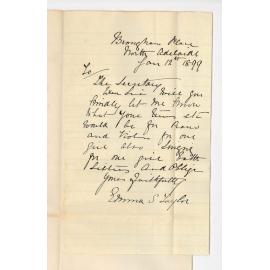 Brougham Place
North Adelaide
Jan 12th 1899
To
The Secretary
Dear Sir Will you
kindly let me know
what your terms etc
would be for Piano
and Violin for one
girl also Singing
for one girl both
Sisters And Oblige
Yours Faithfully
Emma S Taylor